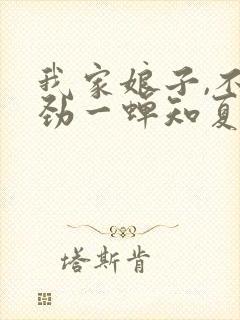 我家娘子,不
劲一蝉知夏
塔斯肯